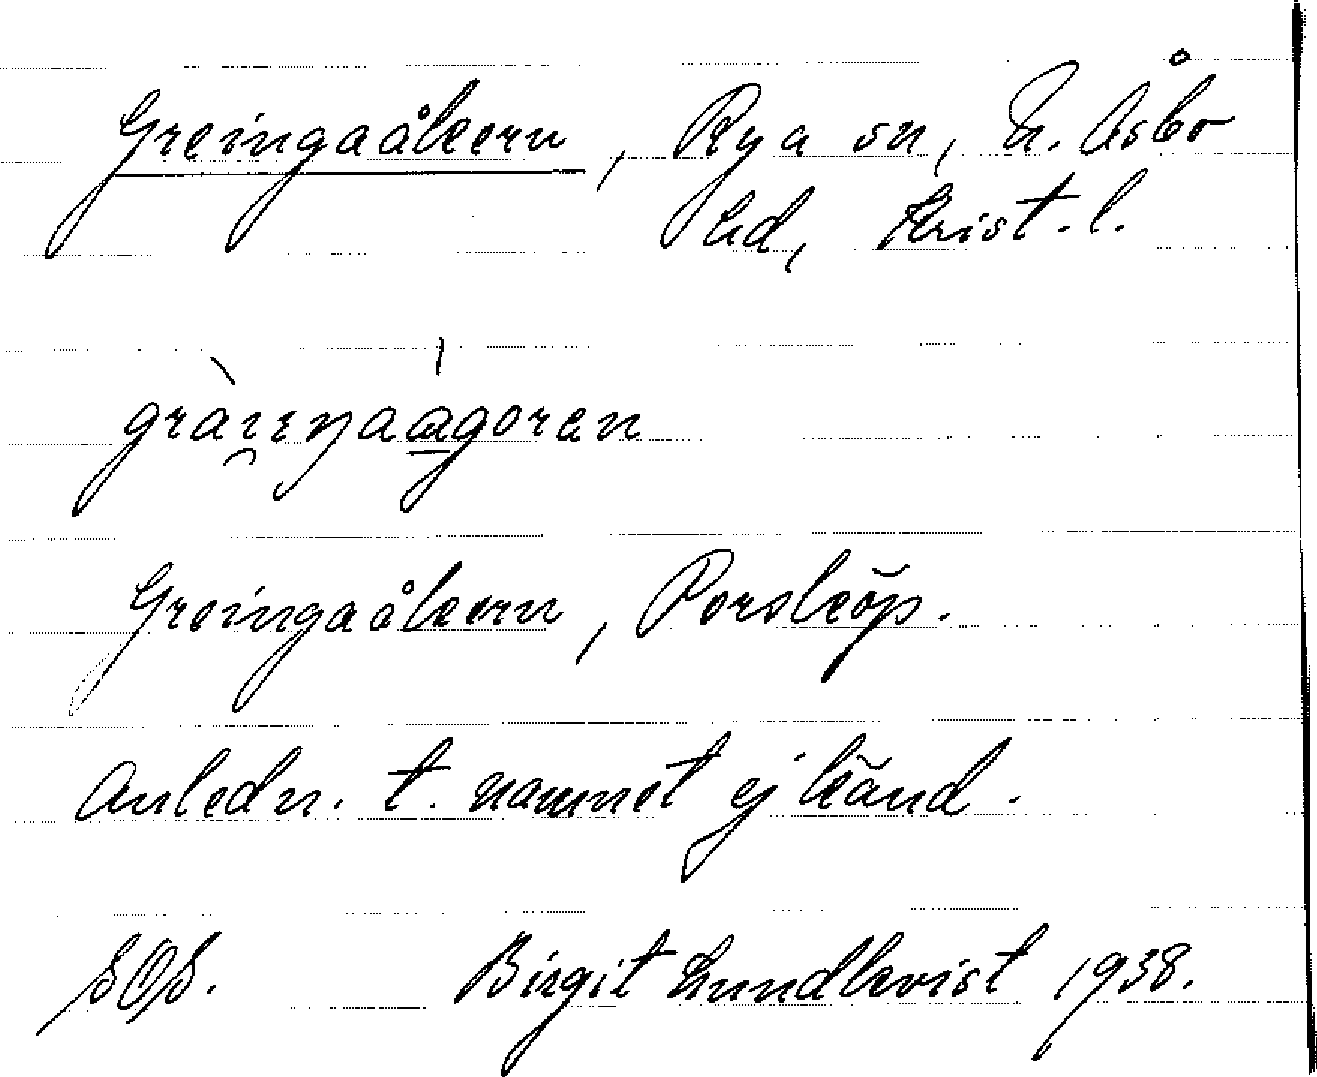 Greingaåkern, Rya sn, N. Åsbo
hd, Krist. l.
Greingaåkern, Porsköp.
Anledn. t. namnet ej känd.
SOS. Birgit Lundkvist 1938.